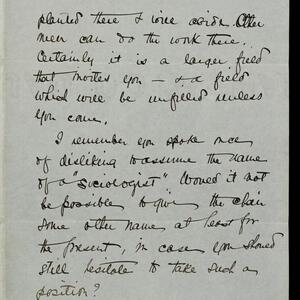 planted there & will abide. Other
men can do the work there.
Certainly it is a larger field
that invites you – & a field
which will be unfilled unless
you come.
I remember you spoke once
of disliking to assume the name
of a "Sociologist" Would it not
be possible to give the chair
some other name at least for
the present, in case you should
still hesitate to take such a
position?